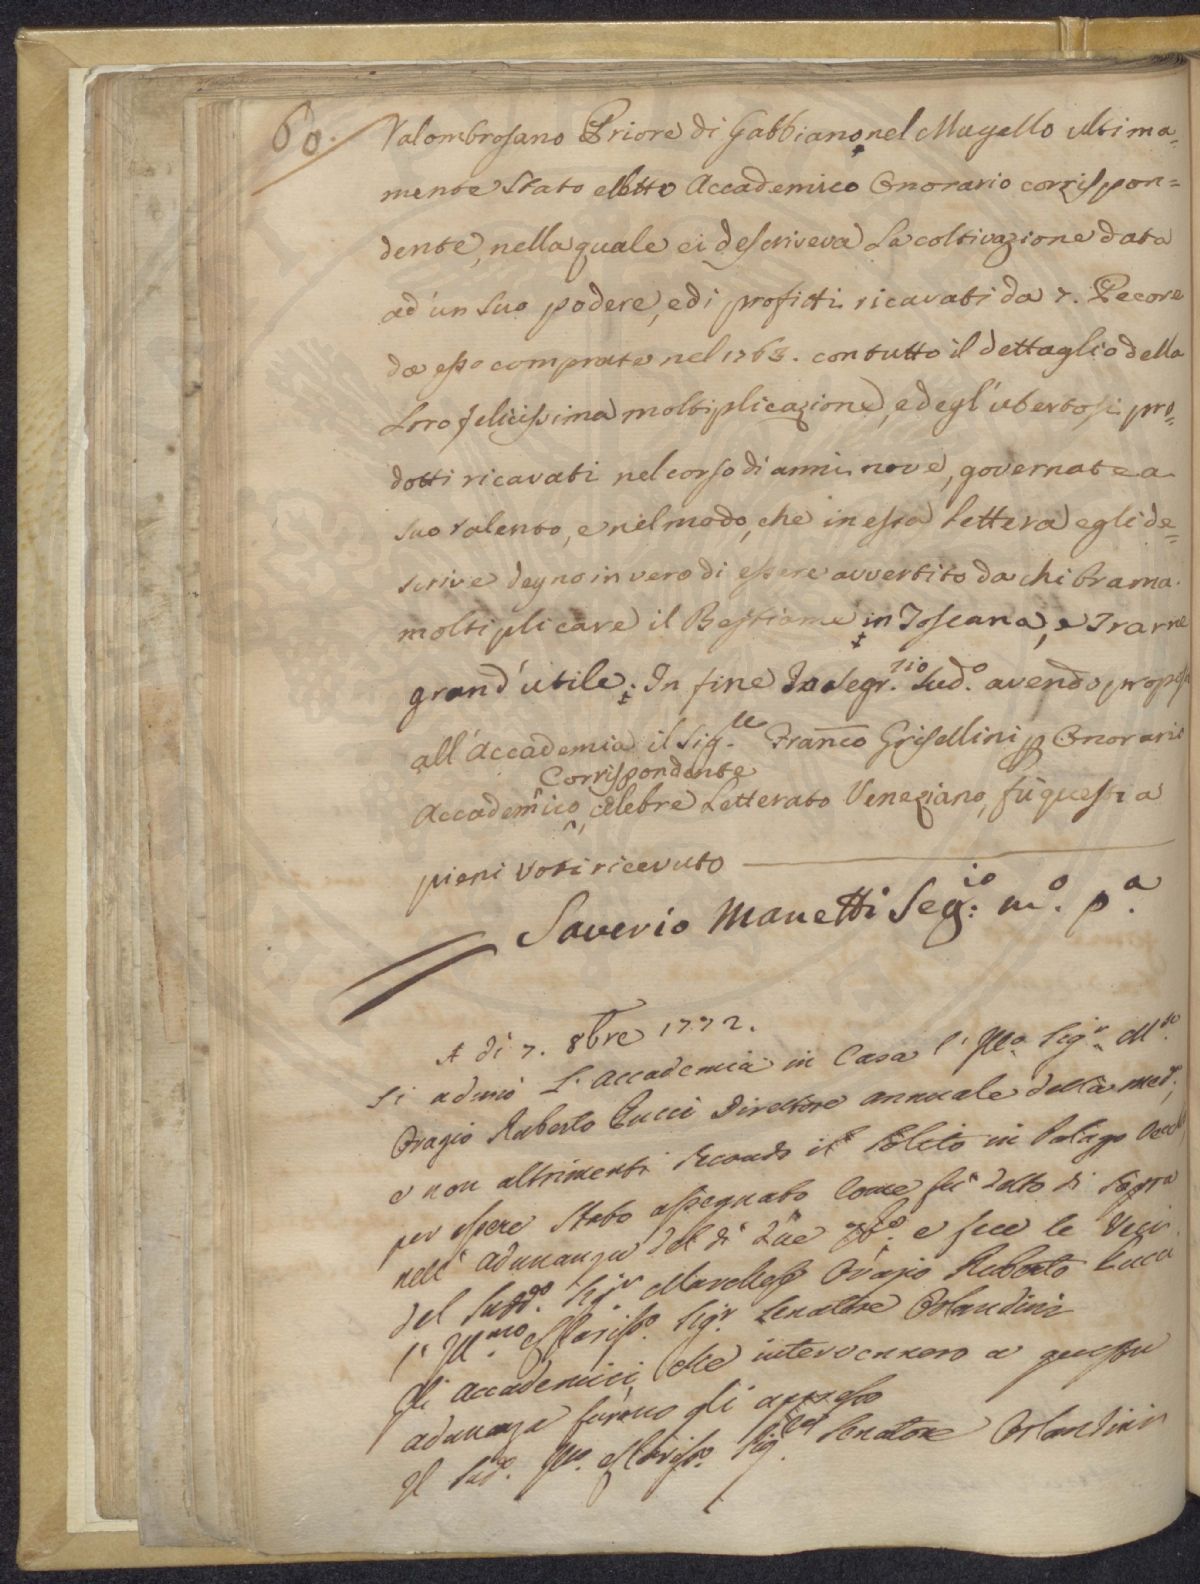 60.
Valombrosano Priore di Gabbiano nel Mugello ultima-
mente stato eletto Accademico Onorario corrispon=
dente, nella quale ei descriveva la coltivazione data
ad un suo podere, e di profitti ricavati da 7. Pecore
da esso comprate nel 1763. con tutto il dettaglio della
loro felicissima moltiplicazione, ed egl'ubertosi pro=
dotti ricavati nel corso di anni nove, governate a
suo talento, e nel modo, che in essa lettera egli de=
scrive degno in vero di essere avvertito da chi brama
moltiplicare il Bestiame in Toscana, e Trarne
grand'utile. In fine Io Segr.rio Sud.o avendo proposto
all'Accademia il Sig.re Franco Grisellini p Onorario
Corrispondente
Accademico, celebre Letterato Veneziano, fù questi a
pieni Voti ricevuto
Saverio Manetti Seg.io m.o p.a
A dì 7. 8bre 1772.
Si adunò L'Accademia in Casa l'Illo. Sigr. M.se
Orazio Ruberto Pucci Direttore annuale della med.a,
e non altrimenti secondo il solito in Palazzo Vecc.o
per essere stato assegnato come fù detto di sopra
nell'adunanza del dì due 7b.e e fece le veci
del sudd.o Sigr Marchese Orazio Ruberto Pucci
l'Ill.mo e Clariss.o Sigr Senatore Orlandini
Gli Accademici, che intervennero a questa
adunanza furono gli appresso
Il Sud.o Illo. e Clariss.o Sig. Senatore Orlandini